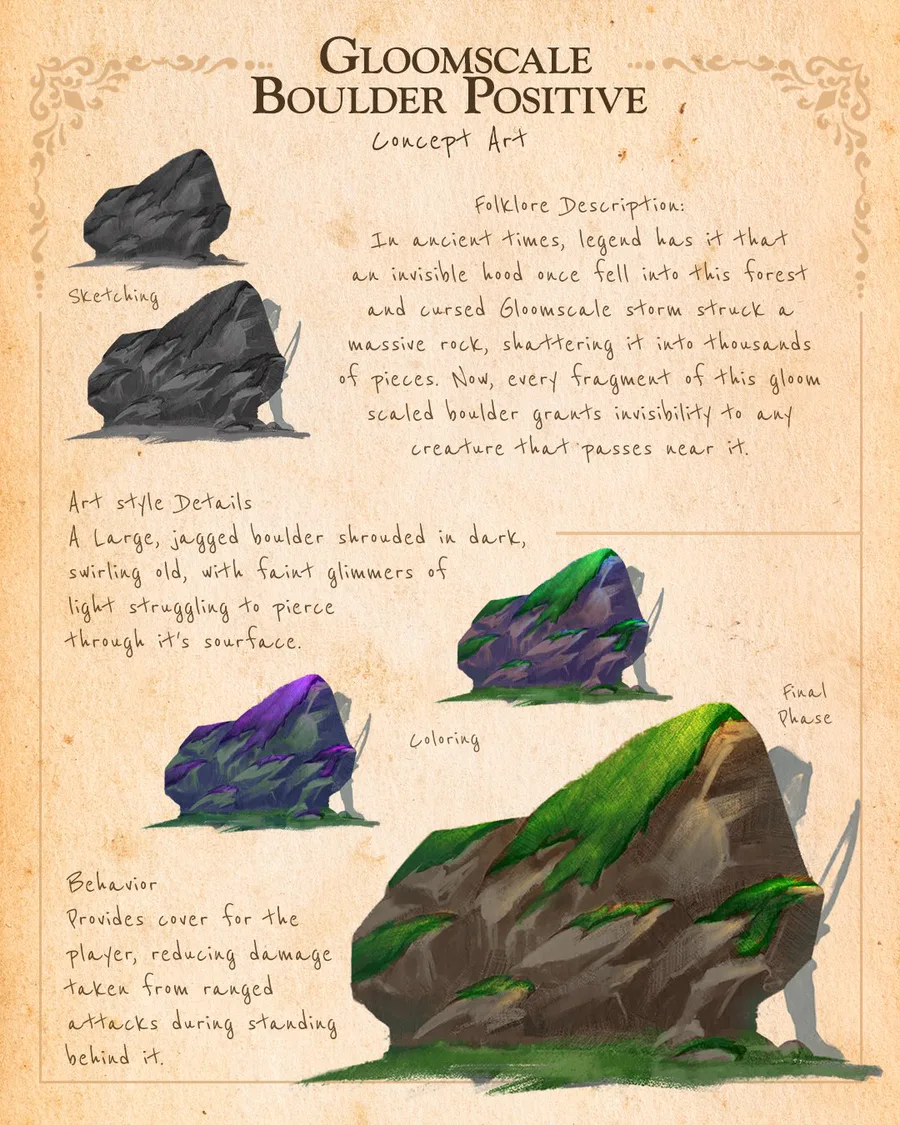 Gloomscale
Boulder Positive
Concept Art
Folklore Description:
In ancient times, legend has it that
an invisible hood once fell into this forest
and cursed Gloomscale storm struck a
massive rock, shattering it into thousands
of pieces. Now, every fragment of this gloom
scaled boulder grants invisibility to any
creature that passes near it.
Sketching
Art style Details
A Large, jagged boulder shrouded in dark,
swirling old, with faint glimmers of
light struggling to pierce
through it's sourface.
Coloring
Final
Phase
Behavior
Provides cover for the
player, reducing damage
taken from ranged
attacks during standing
behind it.